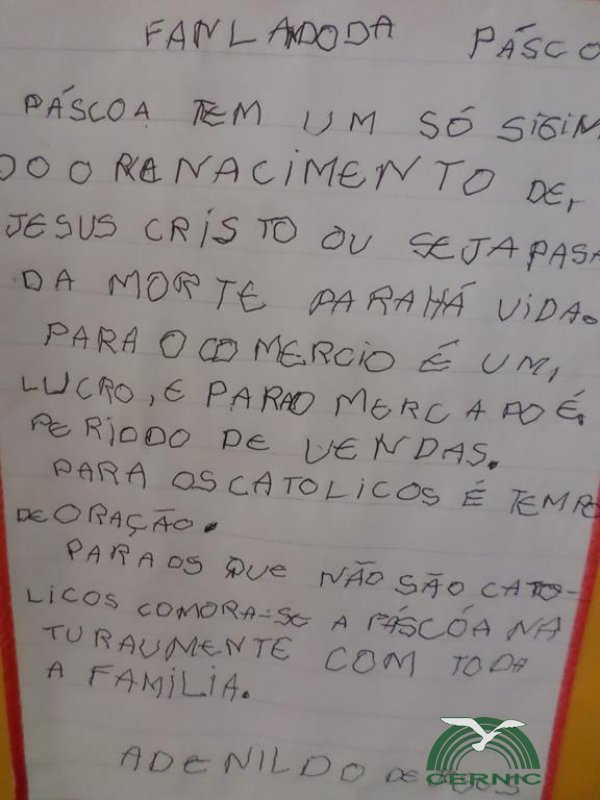 FANLANDODA PÁSCO
PÁSCOA TEM UM SÓ SIGIN
DO O RENACIMENTO DE,
JESUS CRISTO OU SEJA PASA
DA MORTE PARAHÁ VIDA.
PARA O COMERCIO É UM,
LUCRO, E PARAO MERCADO É,
PERIODO DE VENDAS.
PARA OS CATOLICOS É TEMPO
DE ORAÇÃO.
PARA OS QUE NÃO SÃO CATO-
LICOS COMORA-SE A PÁSCÓA NA
TURAUMENTE COM TODA
A FAMÍLIA.
ADENILDO DE
CERNIC